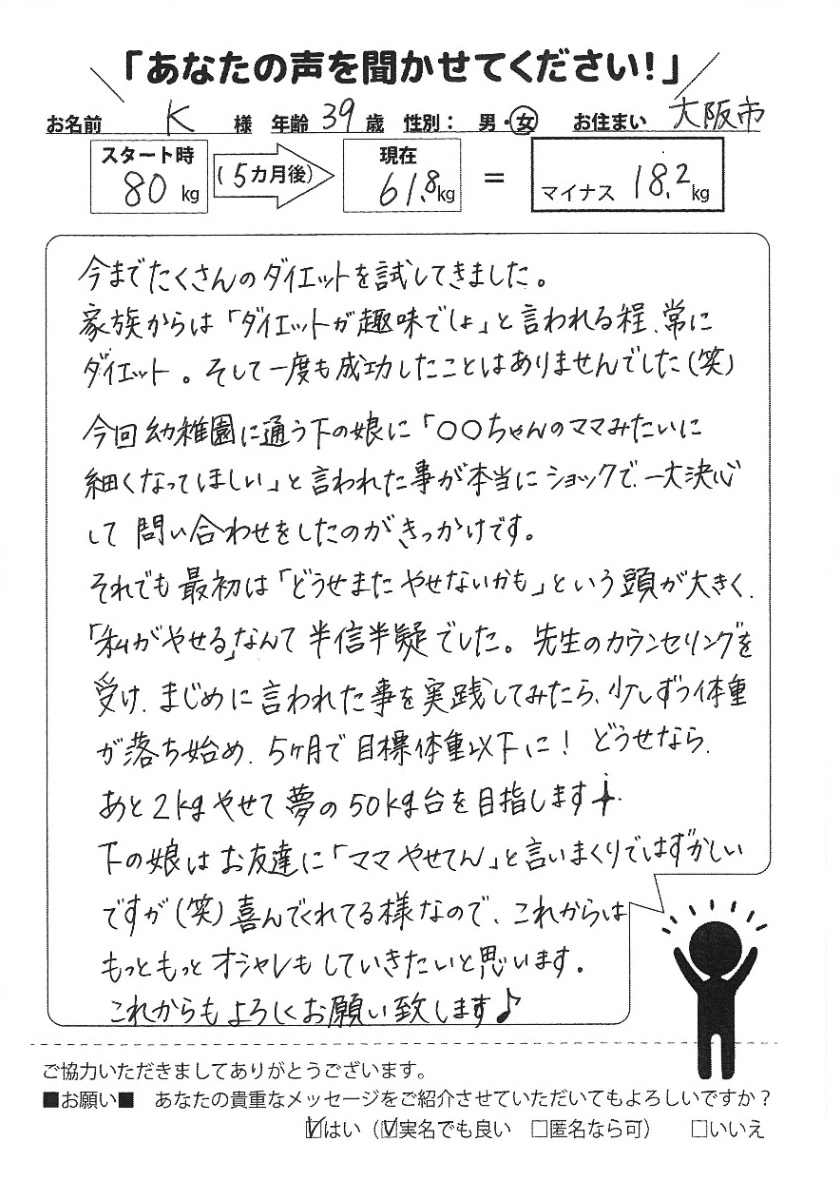 「あなたの声を聞かせてください!」
お名前 K 様 年齢 39 歳 性別: 男・女 お住まい 大阪市
スタート時 80 kg (5カ月後) 現在 61.8kg = マイナス 18.2kg
今までたくさんのダイエットを試してきました。
家族からは「ダイエットが趣味でしょ」と言われる程、常に
ダイエット。そして一度も成功したことはありませんでした(笑)
今回幼稚園に通う下の娘に「○○ちゃんのママみたいに
細くなってほしい」と言われた事が本当にショックで、一大決心
して問い合わせをしたのがきっかけです。
それでも最初は「どうせまたやせないかも」という頭が大きく、
「私がやせる」なんて半信半疑でした。先生のカウンセリングを
受け、まじめに言われた事を実践してみたら、少しずつ体重
が落ち始め、5ヶ月で目標体重以下に!どうせなら、
あと2kgやせて夢の50kg台を目指します
下の娘はお友達に「ママやせてん」と言いまくりではずかしい
ですが(笑)喜んでくれてる様なので、これからは
もっともっとオシャレもしていきたいと思います。
これからもよろしくお願い致します♪
ご協力いただきましてありがとうございます。
■お願い■ あなたの貴重なメッセージをご紹介させていただいてもよろしいですか?
☑はい(☑実名でも良い □匿名なら可) □いいえ